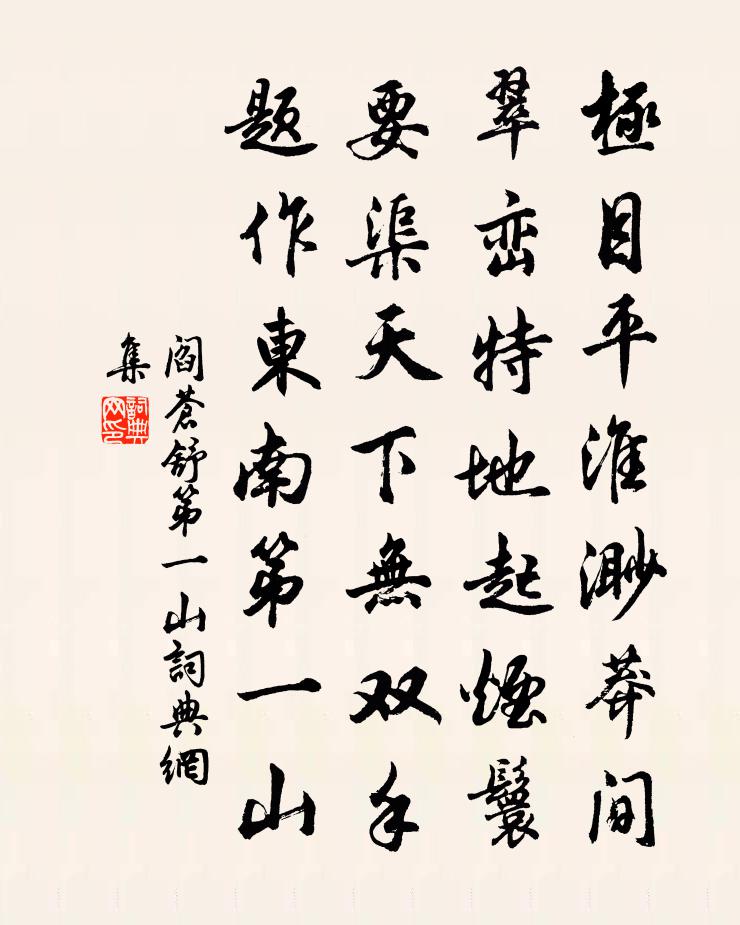 極目平淮渺莽间
翠峦特地起煙鬟
要渠天下無双手
題作東南第一山
阎蒼舒第一山詞典網
集
詞典
网印